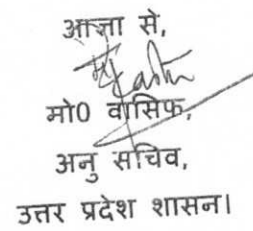 आज्ञा से,
मो0 वासिफ,
अनु सचिव,
उत्तर प्रदेश शासन।